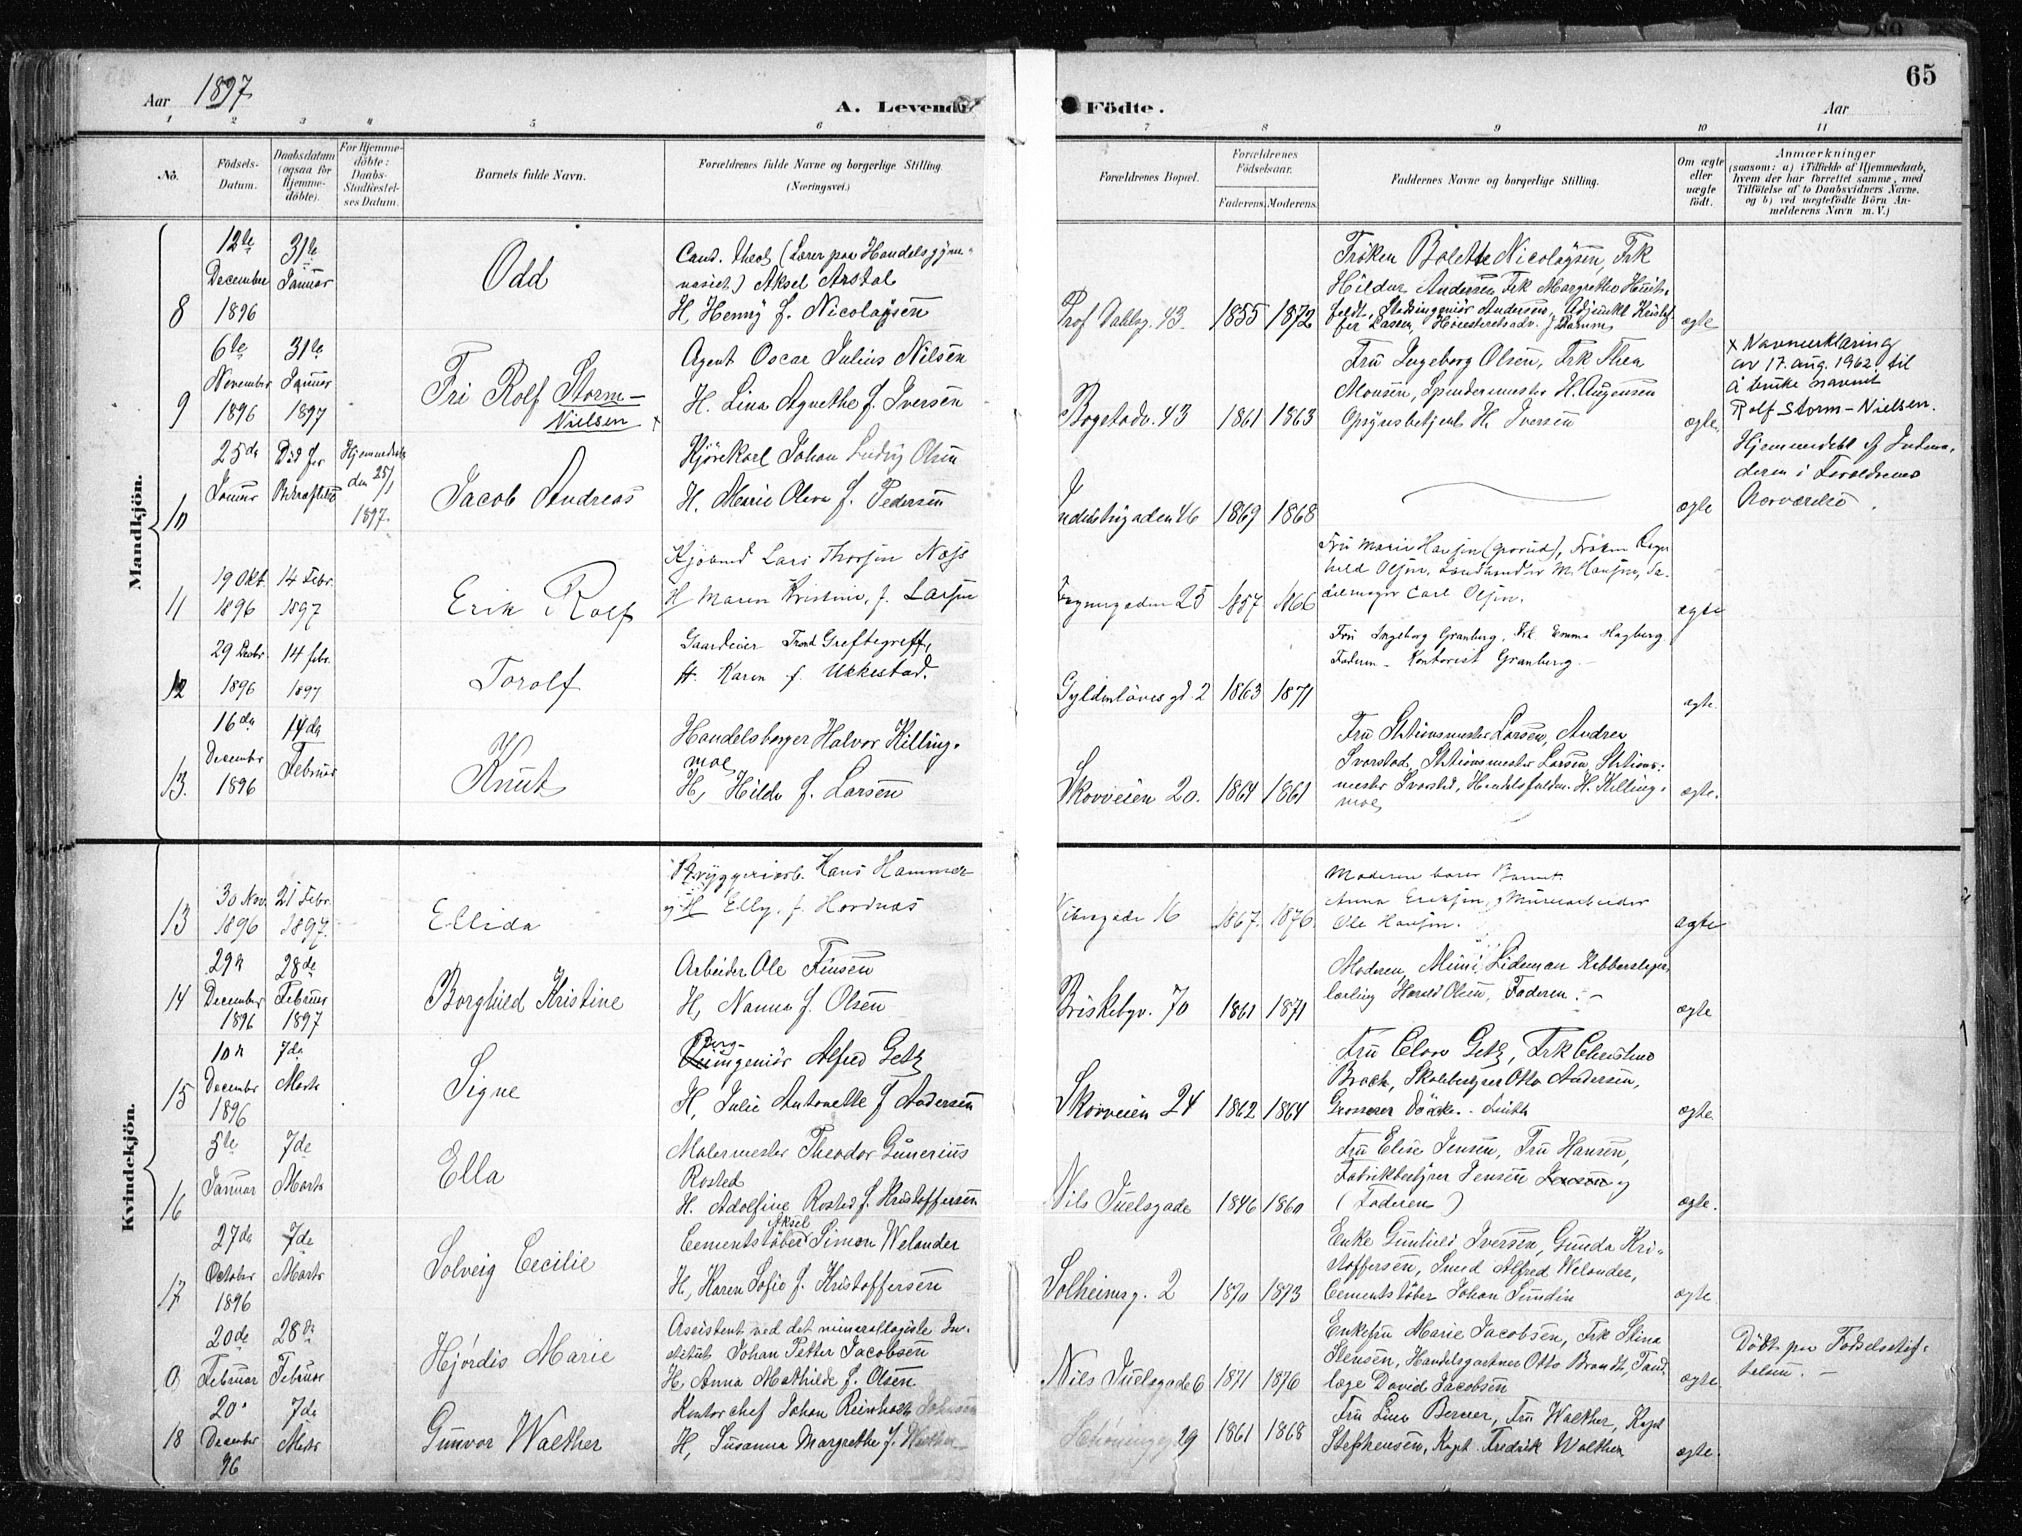 65
Aar 1897
A. Levende Födte.
Aar
1 2 3 4 5 6 7 8 9 10 11
No.
Födsels-Datum.
Daabsdatum (ogsaa for Hjemmedöbte).
For Hjemmedöbte: Daabs-Stadfæstelses Datum.
Barnets fulde Navn.
Forældrenes fulde Navne og borgerlige Stilling.
(Næringsvei.)
Forældrenes Bopæl.
Forældrenes Födselsaar.
Faderens. Moderens.
Faddernes Navne og borgerlige Stilling.
Om ægte eller uægte födt.
Anmærkninger
(saasom: a) i Tilfælde af Hjemmedaab,
hvem der har forrettet samme, med
Tilföielse af to Daabsvidners Navne.
og b) ved uægtefödte Börn An-
melderens Navn m. V.)
Mandkjön.
8
12te December 1896
31te Januar
Odd
Cand. theol. (Lærer paa Handelsgym-
nasiet) Aksel Arstal
H. Henny f. Nicolaysen
Prof Dahlsg. 43
1855 1872
Frøken Bolette Nicolaysen, Frk
Hildur Andersen Frk Margrethe Huit-
feldt, Stadsingeniør Andersen, Adjunkt Kristof-
fer Høiesteretsadv. J.
ægte
9
6te November 1896
31te Januar 1897
Fri Rolf Storm-
Nielsen x
Agent Oscar Julius Nilsen
H. Lina Agnethe f. Iversen
Bogstadv. 43
1861 1863
Fru Ingeborg Olsen, Frk Thea
Monsen, Spændermester H. Augensen
Opsynsbetjent H. Iversen
ægte.
x Navneerklæring
av 17. aug. 1962 til
å bruke navnet
Rolf Storm-Nielsen.
10
25de Januar
Död før Bekræftelse
Hjemmedøbt den 25/1 1897.
Jacob Andreas
Kjørekarl Johan Ludvig Olsen
H. Marie Oliva f. Pedersen
Industrigaden 46
1869 1868
ægte
Hjemmedøbt af Jordmo-
deren i Forældrenes
Nærværelse.
11
19 Okt. 1896
14 Febr. 1897
Erik Rolf
Kjøbmd Lars Thorsen Næss
H Maren Kristine, f. Larsen
Frognergaden 25
1857 1866
Fru Marie Hansen (Grorud), Frøken Ragn-
hild Olsen, Landhandler M. Hansen, Sa-
delmager Carl Olsen.
ægte
12
29 Decbr. 1896
14 febr. 1897
Torolf
Gaardeier Trond Greftegreff,
H. Karen f. Ukkestad.
Gyldenløves gd. 2
1863 1871
Fru Ingeborg Granberg, Frk Emma Hagberg
Faderen - Kontorist Granberg.
ægte.
13.
16de December 1896
14de Februar
Knut
Handelsborger Halvor Killing-
moe
H, Hilda f. Larsen
Skovveien 20.
1864 1861
Fru Stationsmester Larsen, Andrea
Svarstad, Stationsmester Larsen, Stations-
mester Svarstad, Handelsfuldm. H. Killing-
moe
ægte.
Kvindekjön.
13
30 Nov. 1896
21 Febr. 1897.
Ellida
Bryggeriarb. Hans Hammer
H Elly, f. Hordnæs
Vibesgade 16
1867. 1876.
Moderen bærer Barnet.
Anna Eriksen, Murerarbeider
Ole Hansen.
ægte
14
29n December 1896
28de Februar 1897
Borghild Kristine
Arbeider Ole Finsen
H, Nanna f. Olsen
Briskebyv. 70
1861 1871
Moderen, Mimi Lideman Kobberslager-
lærling Harald Olsen, Faderen.
ægte
15
10n December 1896
7de Marts
Signe
Berg-
ingeniør Alfred Getz
H, Julie Antonette f Andersen
Skovveien 24
1862 1864
Fru Clara Getz, Frk Christine
Broch, Skolebestyrer Otto Andersen,
Grosserer Smith
ægte
16
5te Januar
7de Marts
Ella
Malermester Theodor Gunerius
Rosted
H. Adolfine Rosted f. Kristoffersen
Nils Juelsgade
1846 1860
Fru Elise Jensen, Fru Hansen,
Fabrikbestyrer Jensen og
(Faderen)
ægte.
17
27de October 1896
7de Marts
Solveig Cecilie
Aksel
Cementstøber Simon Welander
H, Karen Sofie f. Kristoffersen
Solheimsg. 2
1870 1873
Enke Gunhild Iversen, Gunda Kri-
stoffersen, Smed Alfred Welander,
Cementstøber Johan Sundin
ægte
9
20de Februar
28de Februar
Hjørdis Marie
Assistent ved det mineralogiske In-
stitut Johan Petter Jacobsen
H, Anna Mathilde f. Olsen
Nils Juelsgade 6
1871 1876
Enkefru Marie Jacobsen, Frk Stina
Stensen, Handelsgartner Otto Brandt, Tand-
læge David Jacobsen
ægte
Födt paa Fødselsstif-
telsen.
18
20 December 96
7de Marts
Gunvor Walther
Kontorchef Johan Reinholdt Johnsen
H, Susanna Margrethe f. Walther
Schøningsg 29
1861 1868
Fru Lina Berner, Fru Walther, Kapt
Steffensen, Kapt. Fredrik Walther
ægte.